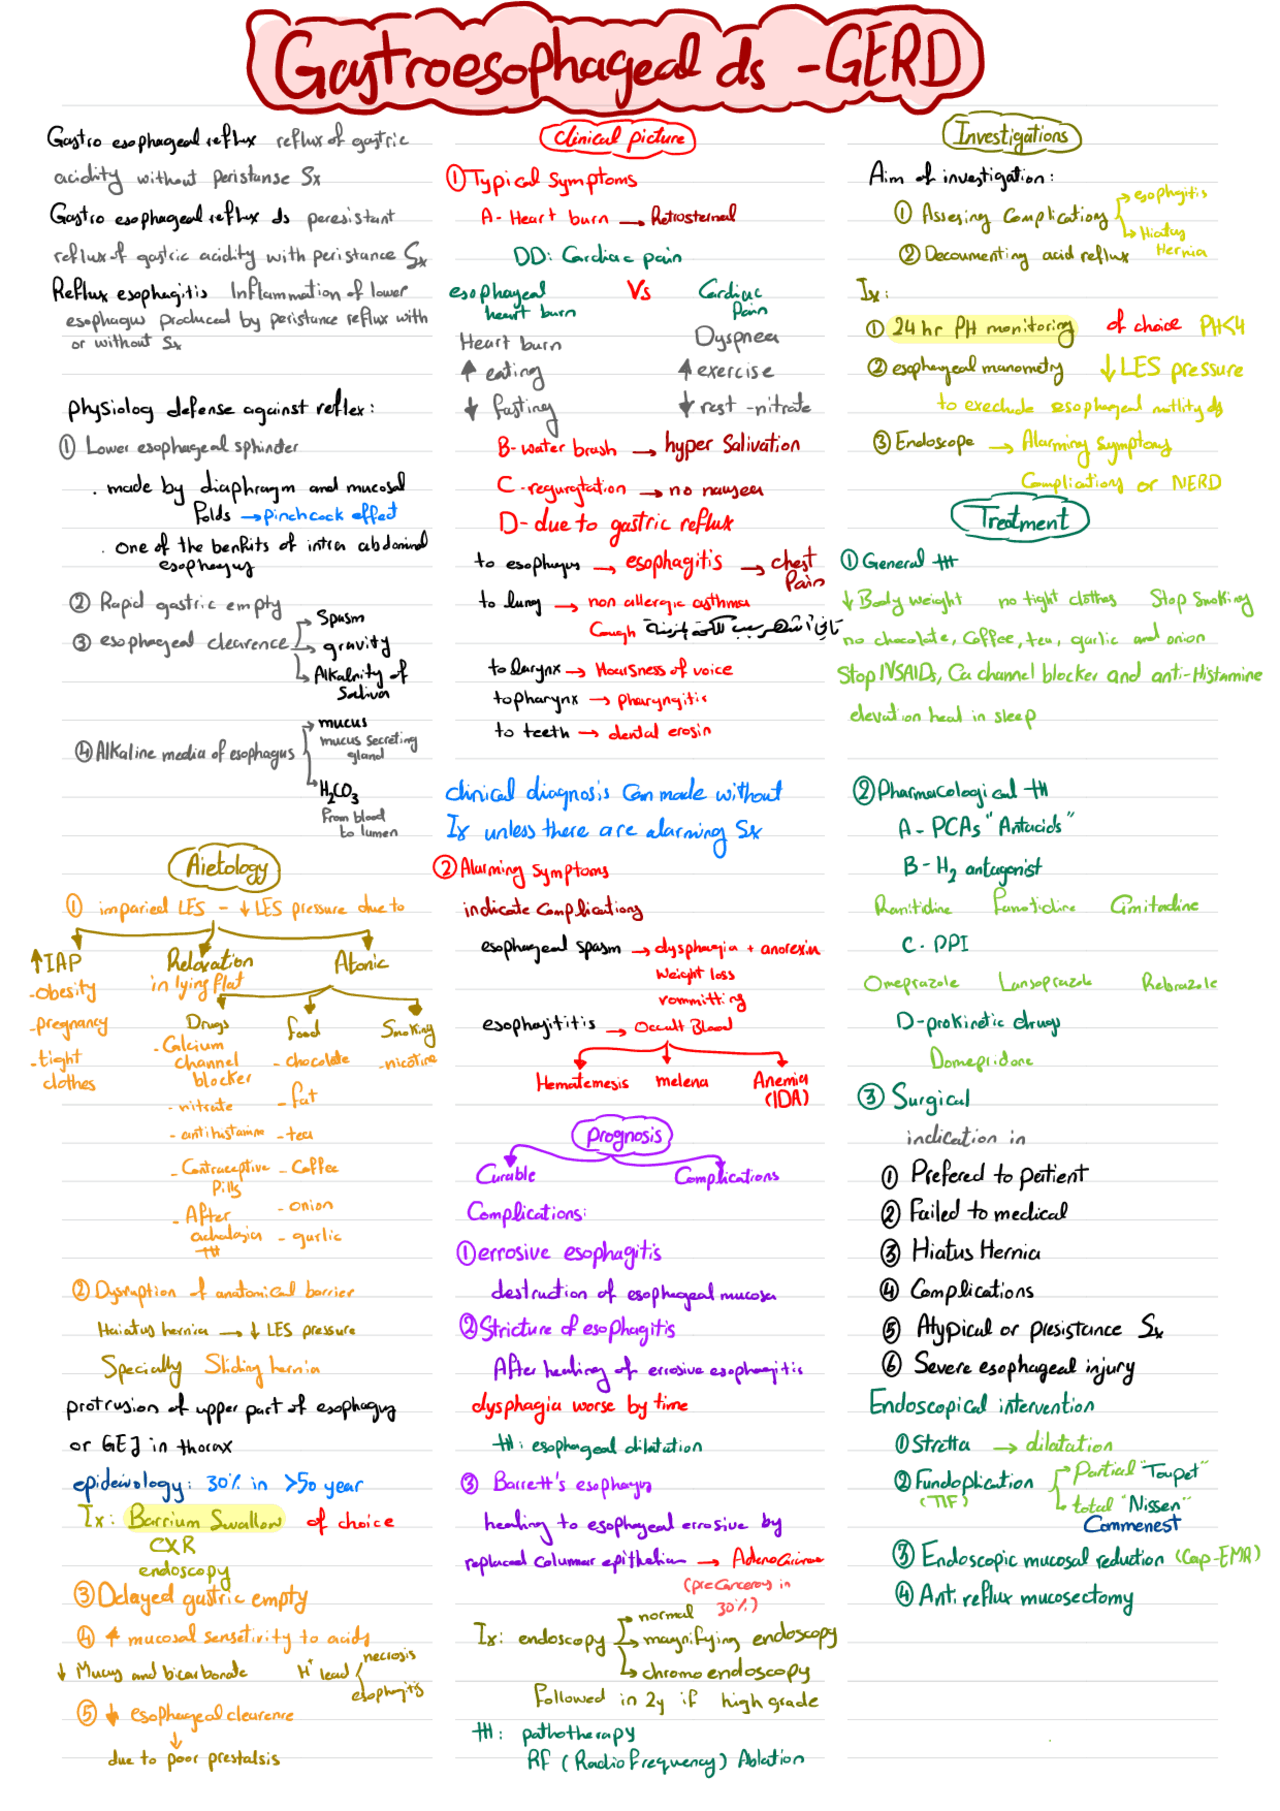 Gastroesophageal ds -GERD
Gastro esophageal reflux reflux of gastric
acidity without peristanse Sx
Gastro esophageal reflux ds peresistant
reflux of gastric acidity with peristance Sx
Reflux esophagitis Inflammation of lower
esophagus produced by peristance reflux with
or without Sx
physiolog defense against reflex:
① Lower esophageal sphincter
. made by diaphragm and mucosal
Folds → pinchcock effect
. one of the benfits of intra abdominal
esophagus
② Rapid gastric empty
③ esophageal clearence
Spasm
gravity
Alkalnity of
Saliva
④ Alkaline media of esophagus
mucus
mucus secreting
gland
H₂CO₃
From blood
to lumen
Aietology
① imparied LES - ↓ LES pressure due to
↑IAP
-obesity
-pregnancy
-tight
clothes
Relaxation
in lying flat
Atonic
Drugs
- Calcium
channel
blocker
- nitrate
- antihistamine
- Contraceptive
Pills
- After
achalasia
ttt
food
- chocolate
- fat
- tea
- Coffee
- onion
- garlic
Smoking
-nicotine
② Dysruption of anatomical barrier
Haiatus hernia → ↓ LES pressure
Specially Sliding hernia
protrusion of upper part of esophagus
or GEJ in thorax
epideiology: 30% in >50 year
Ix: Barrium Swallow of choice
CXR
endoscopy
③ Delayed gastric empty
④ ↑ mucosal sensetivity to acids
↓ Mucus and bicarbonate H⁺ lead
necrosis
esophagitis
⑤ ↓ esophageal clearence
↓
due to poor prestalsis
Clinical picture
① Typical Symptoms
A- Heart burn → Retrosternal
DD: Cardiac pain
esophageal
heart burn
Vs
Cardiac
Pain
Heart burn
↑ eating
↓ fasting
Dyspnea
↑ exercise
↓ rest -nitrate
B- water brush → hyper Salivation
C -regurgtation → no nausea
D- due to gastric reflux
to esophagus → esophagitis → chest
Pain
to lung → non allergic asthma
Cough
to larynx → Hoarsness of voice
to pharynx → pharyngitis
to teeth → dental erosin
clinical diagnosis Can made without
Ix unless there are alarming Sx
② Alarming Symptoms
indicate Complications
esophageal spasm → dysphagia + anorexia
Weight loss
vommitting
esophajititis → Occult Blood
Hematemesis melena Anemia
(IDA)
Prognosis
Curable Complications
Complications:
① errosive esophagitis
destruction of esophageal mucosa
② Stricture of esophagitis
After healing of errosive esophagitis
dysphagia worse by time
ttt: esophageal dilatation
③ Barrett's esophagus
healing to esophageal errosive by
replaced columnar epithelium → Adenocarcinoma
(precancerous in
30%)
Ix: endoscopy
normal
magnifying endoscopy
chromo endoscopy
Followed in 2y if high grade
ttt: pathotherapy
RF (Radio Frequency) Ablation
Investigations
Aim of investigation:
① Assesing Complications
esophagitis
Hiatus
Hernia
② Decoumenting acid reflux
Ix:
① 24 hr PH monitoring of choice PH<4
② esophageal manometry ↓ LES pressure
to execlude esophageal motlity ds
③ Endoscope → Alarming symptoms
Complications or NERD
Treatment
① General ttt
↓ Body weight no tight clothes Stop Smoking
no chocolate, Coffee, tea, garlic and onion
Stop NSAIDs, Ca channel blocker and anti-Histamine
elevation head in sleep
② Pharmacological ttt
A - PCAs "Antacids"
B - H₂ antagonist
Ranitidine Famotidine Cimitadine
C. PPI
Omeprazole Lansoprazole Rebrazole
D-prokinetic drugs
Domepridone
③ Surgical
indication in
① Prefered to patient
② Failed to medical
③ Hiatus Hernia
④ Complications
⑤ Atypical or presistance Sx
⑥ Severe esophageal injury
Endoscopical intervention
① Stretta → dilatation
② Fundoplication
(TIF)
Partial "Toupet"
total "Nissen"
Commenest
③ Endoscopic mucosal reduction (Cap-EMR)
④ Anti reflux mucosectomy